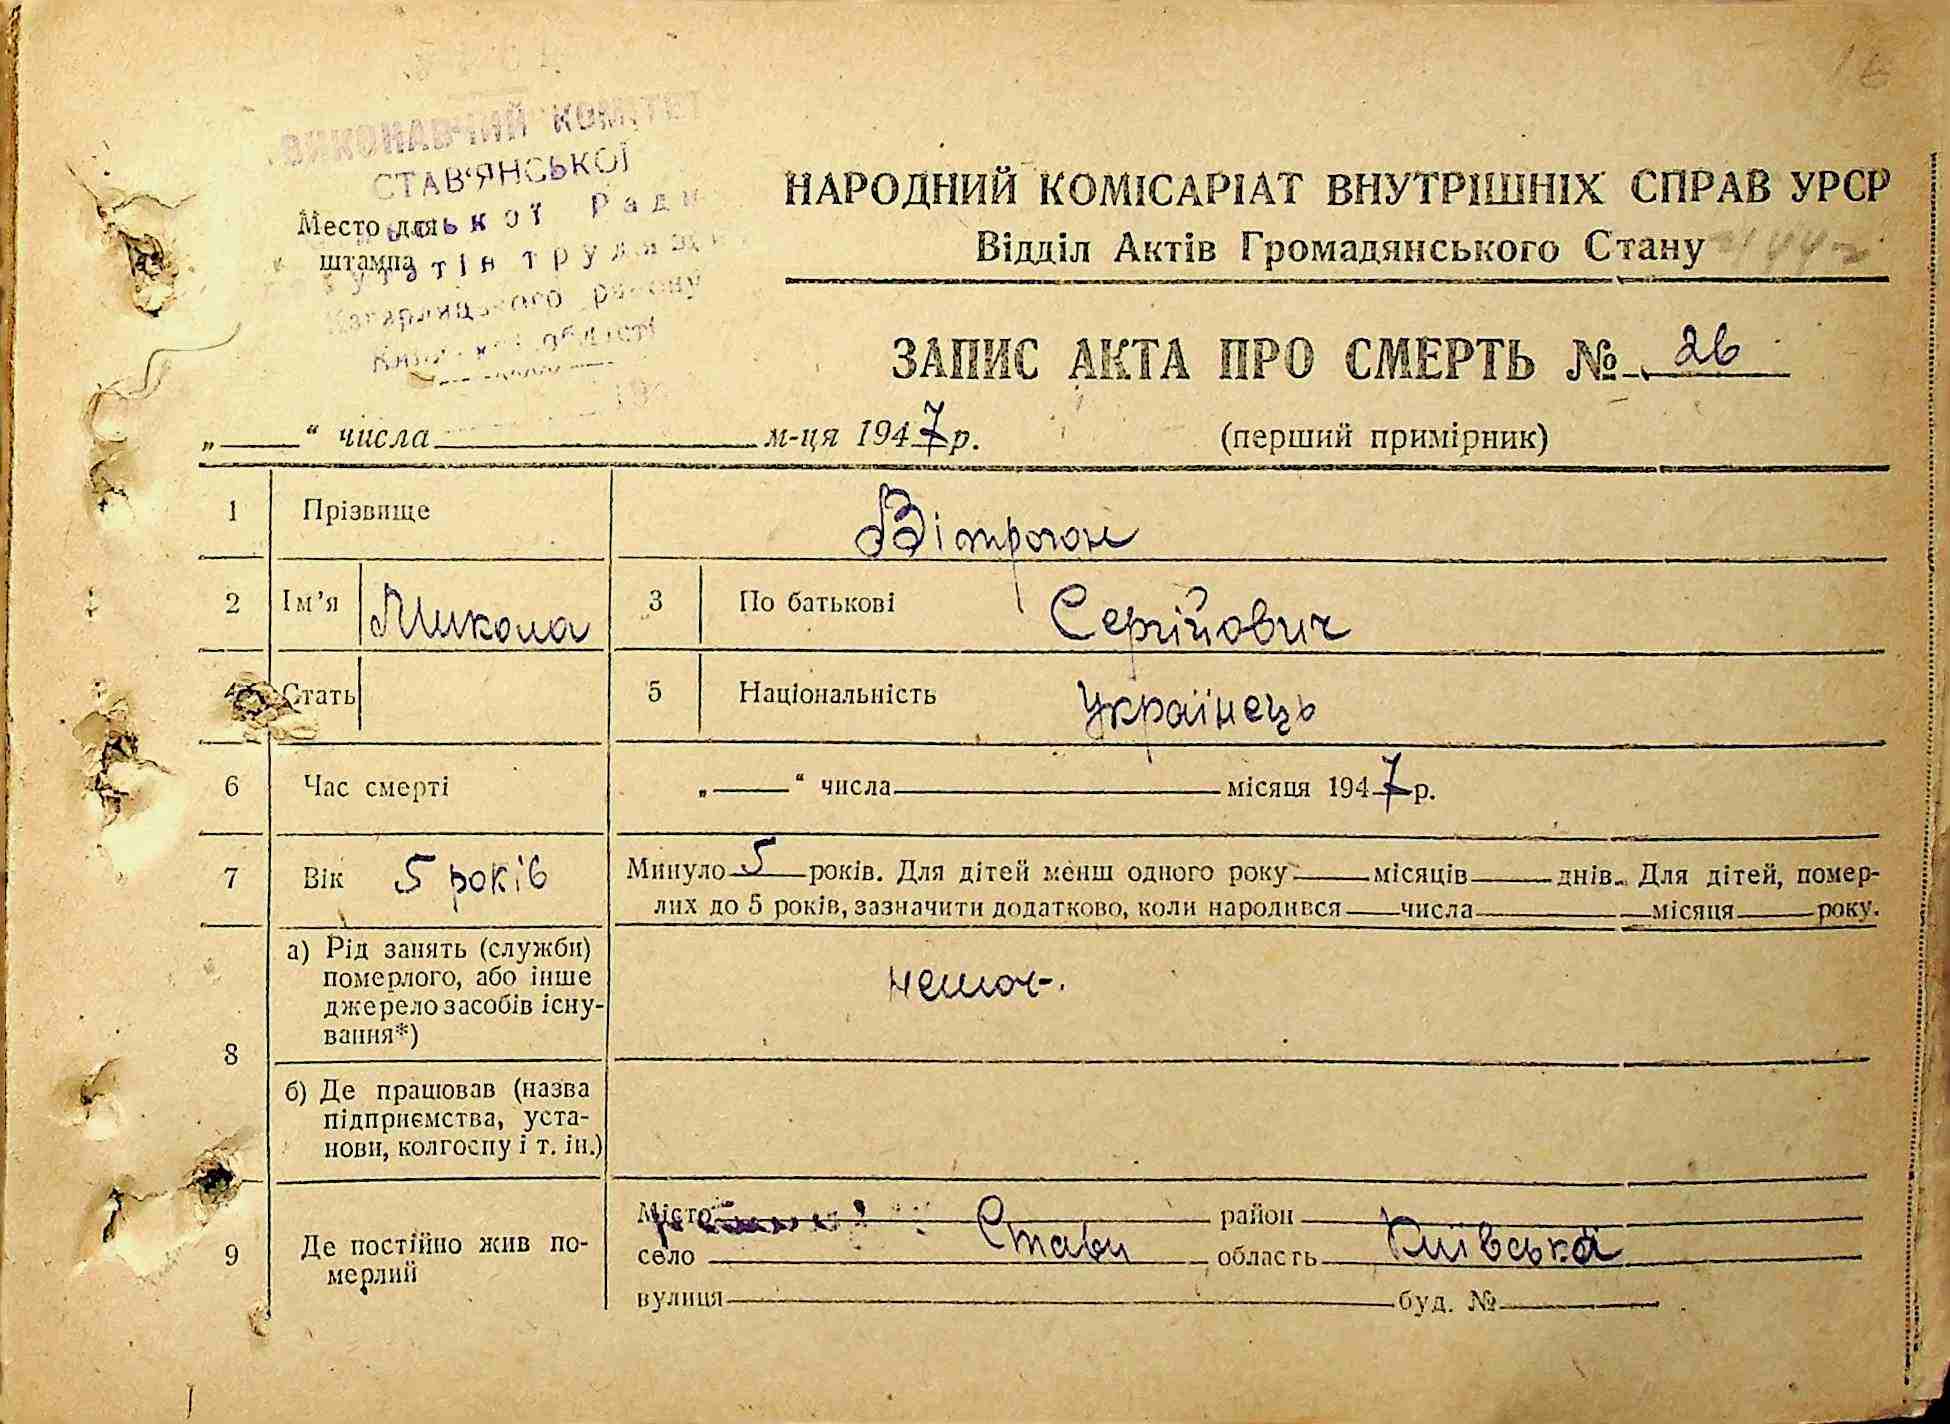 16
ВИКОНАВЧИЙ КОМІТЕТ
СТАВ'ЯНСЬКОЇ
Ради
Место для
штампа
трудящих
Кагарлицького району
області
НАРОДНИЙ КОМІСАРІАТ ВНУТРІШНІХ СПРАВ УРСР
Відділ Актів Громадянського Стану
ЗАПИС АКТА ПРО СМЕРТЬ № 26
„ “ числа м-ця 1947 р. (перший примірник)
1 Прізвище Вітрогон
2 Ім'я Микола 3 По батькові Сергійович
4 Стать 5 Національність Українець
6 Час смерті „ “ числа місяця 1947 р.
7 Вік 5 років Минуло 5 років. Для дітей менш одного року місяців днів. Для дітей, помер-
лих до 5 років, зазначити додатково, коли народився числа місяця року.
8 а) Рід занять (служби)
померлого, або інше
джерело засобів існу-
вання*)
б) Де працював (назва
підприємства, уста-
нови, колгоспу і т. ін.)
9 Де постійно жив по-
мерлий
Місто район
село Стави область Київська
вулиця буд. №